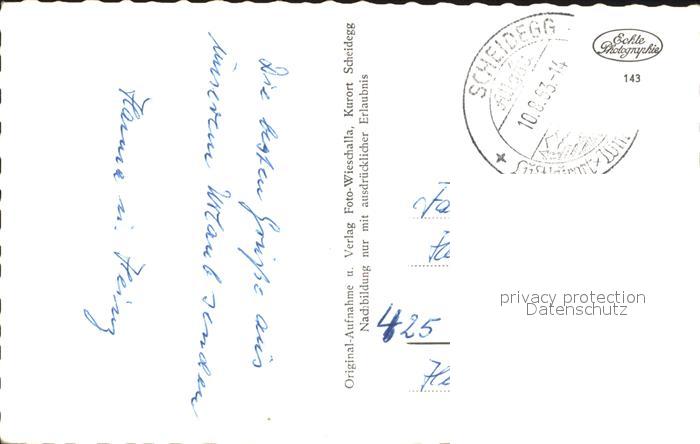 Die besten Grüße aus
unserem Urlaub senden
Hanna u. Heinz
Original-Aufnahme u. Verlag Foto-Wieschalla, Kurort Scheidegg
Nachbildung nur mit ausdrücklicher Erlaubnis
SCHEIDEGG
(Allgäu)
10.8.63.-14
Luftkurort
Echte
Photographie
143
Fa
Fa
425
He
privacy protection
Datenschutz